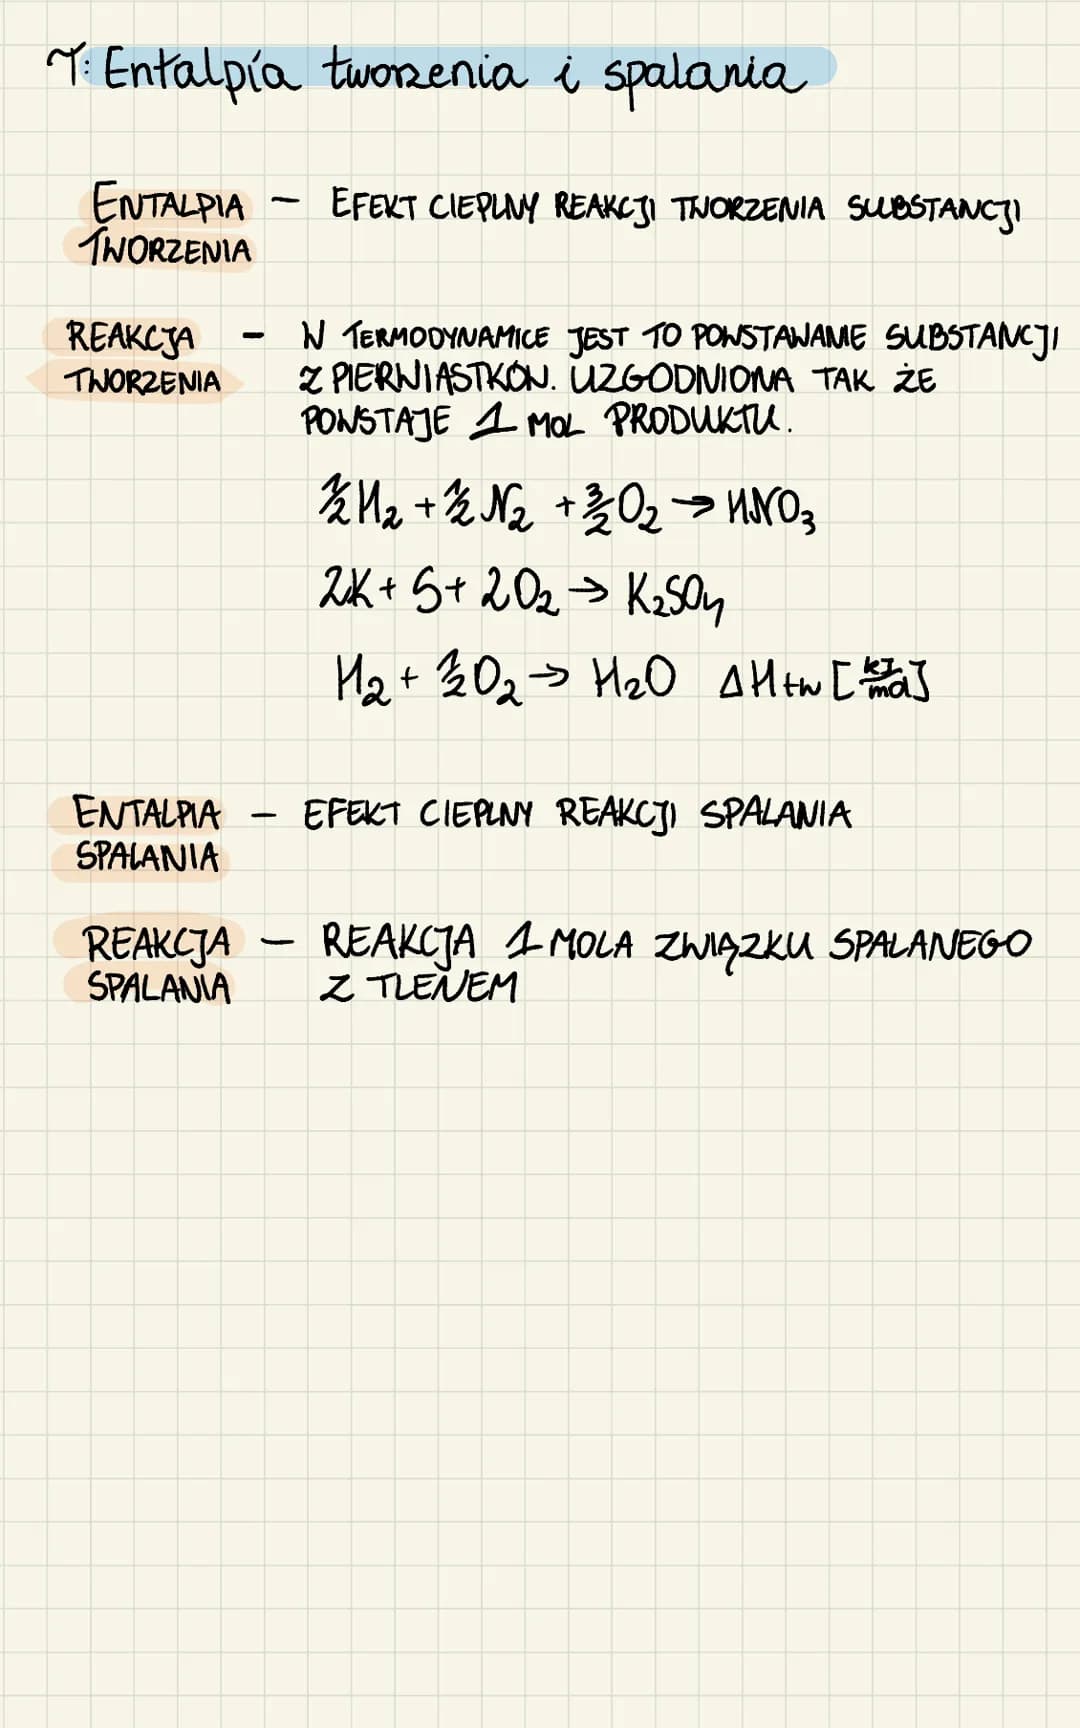 T: Entalpia tworzenia i spalania
ENTALPIA – EFEKT CIEPLNY REAKCJI TWORZENIA SUBSTANCJI
TWORZENIA
REAKCJA – W TERMODYNAMICE JEST TO POWSTAWANIE SUBSTANCJI
TWORZENIA Z PIERWIASTKÓW. UZGODNIONA TAK ŻE
POWSTAJE 1 MOL PRODUKTU.
½H₂ + ½N₂ + 3/2O₂ → HNO₃
2K + S + 2O₂ → K₂SO₄
H₂ + ½O₂ → H₂O ΔHtw [kJ/mol]
ENTALPIA – EFEKT CIEPLNY REAKCJI SPALANIA
SPALANIA
REAKCJA – REAKCJA 1 MOLA ZWIĄZKU SPALANEGO
SPALANIA Z TLENEM